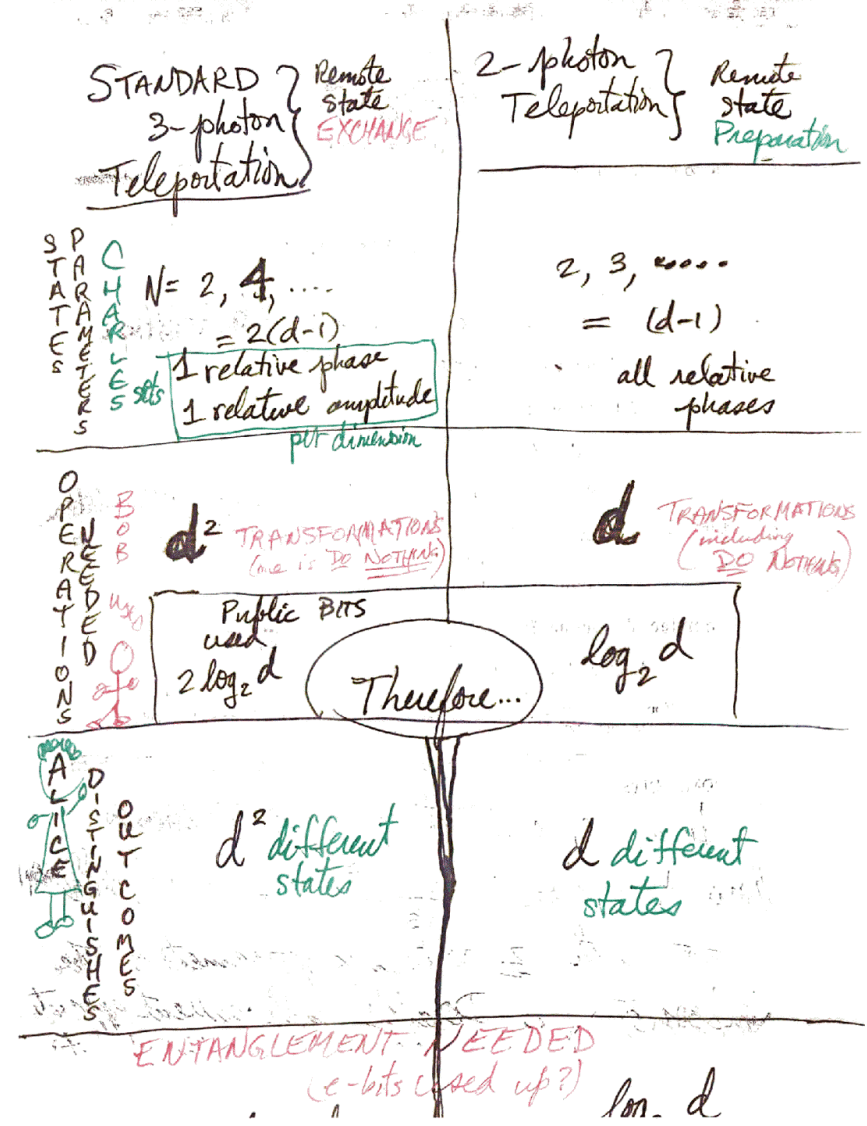 STANDARD
3-photon
Teleportation
Remote
state
EXCHANGE
2-photon
Teleportation
Remote
state
Preparation
STATES
PARAMETERS
CHARLES
sets
N= 2, 4, ....
= 2(d-1)
1 relative phase
1 relative amplitude
per dimension
2, 3, .....
= (d-1)
all relative
phases
OPERATIONS
NEEDED
BOB
uses
d² TRANSFORMATIONS
(one is DO NOTHING)
d TRANSFORMATIONS
(including
DO NOTHING)
Public BITS
used
2 log₂ d
Therefore...
log₂ d
ALICE
DISTINGUISHES
OUTCOMES
d² different
states
d different
states
ENTANGLEMENT NEEDED
(e-bits used up?)
d